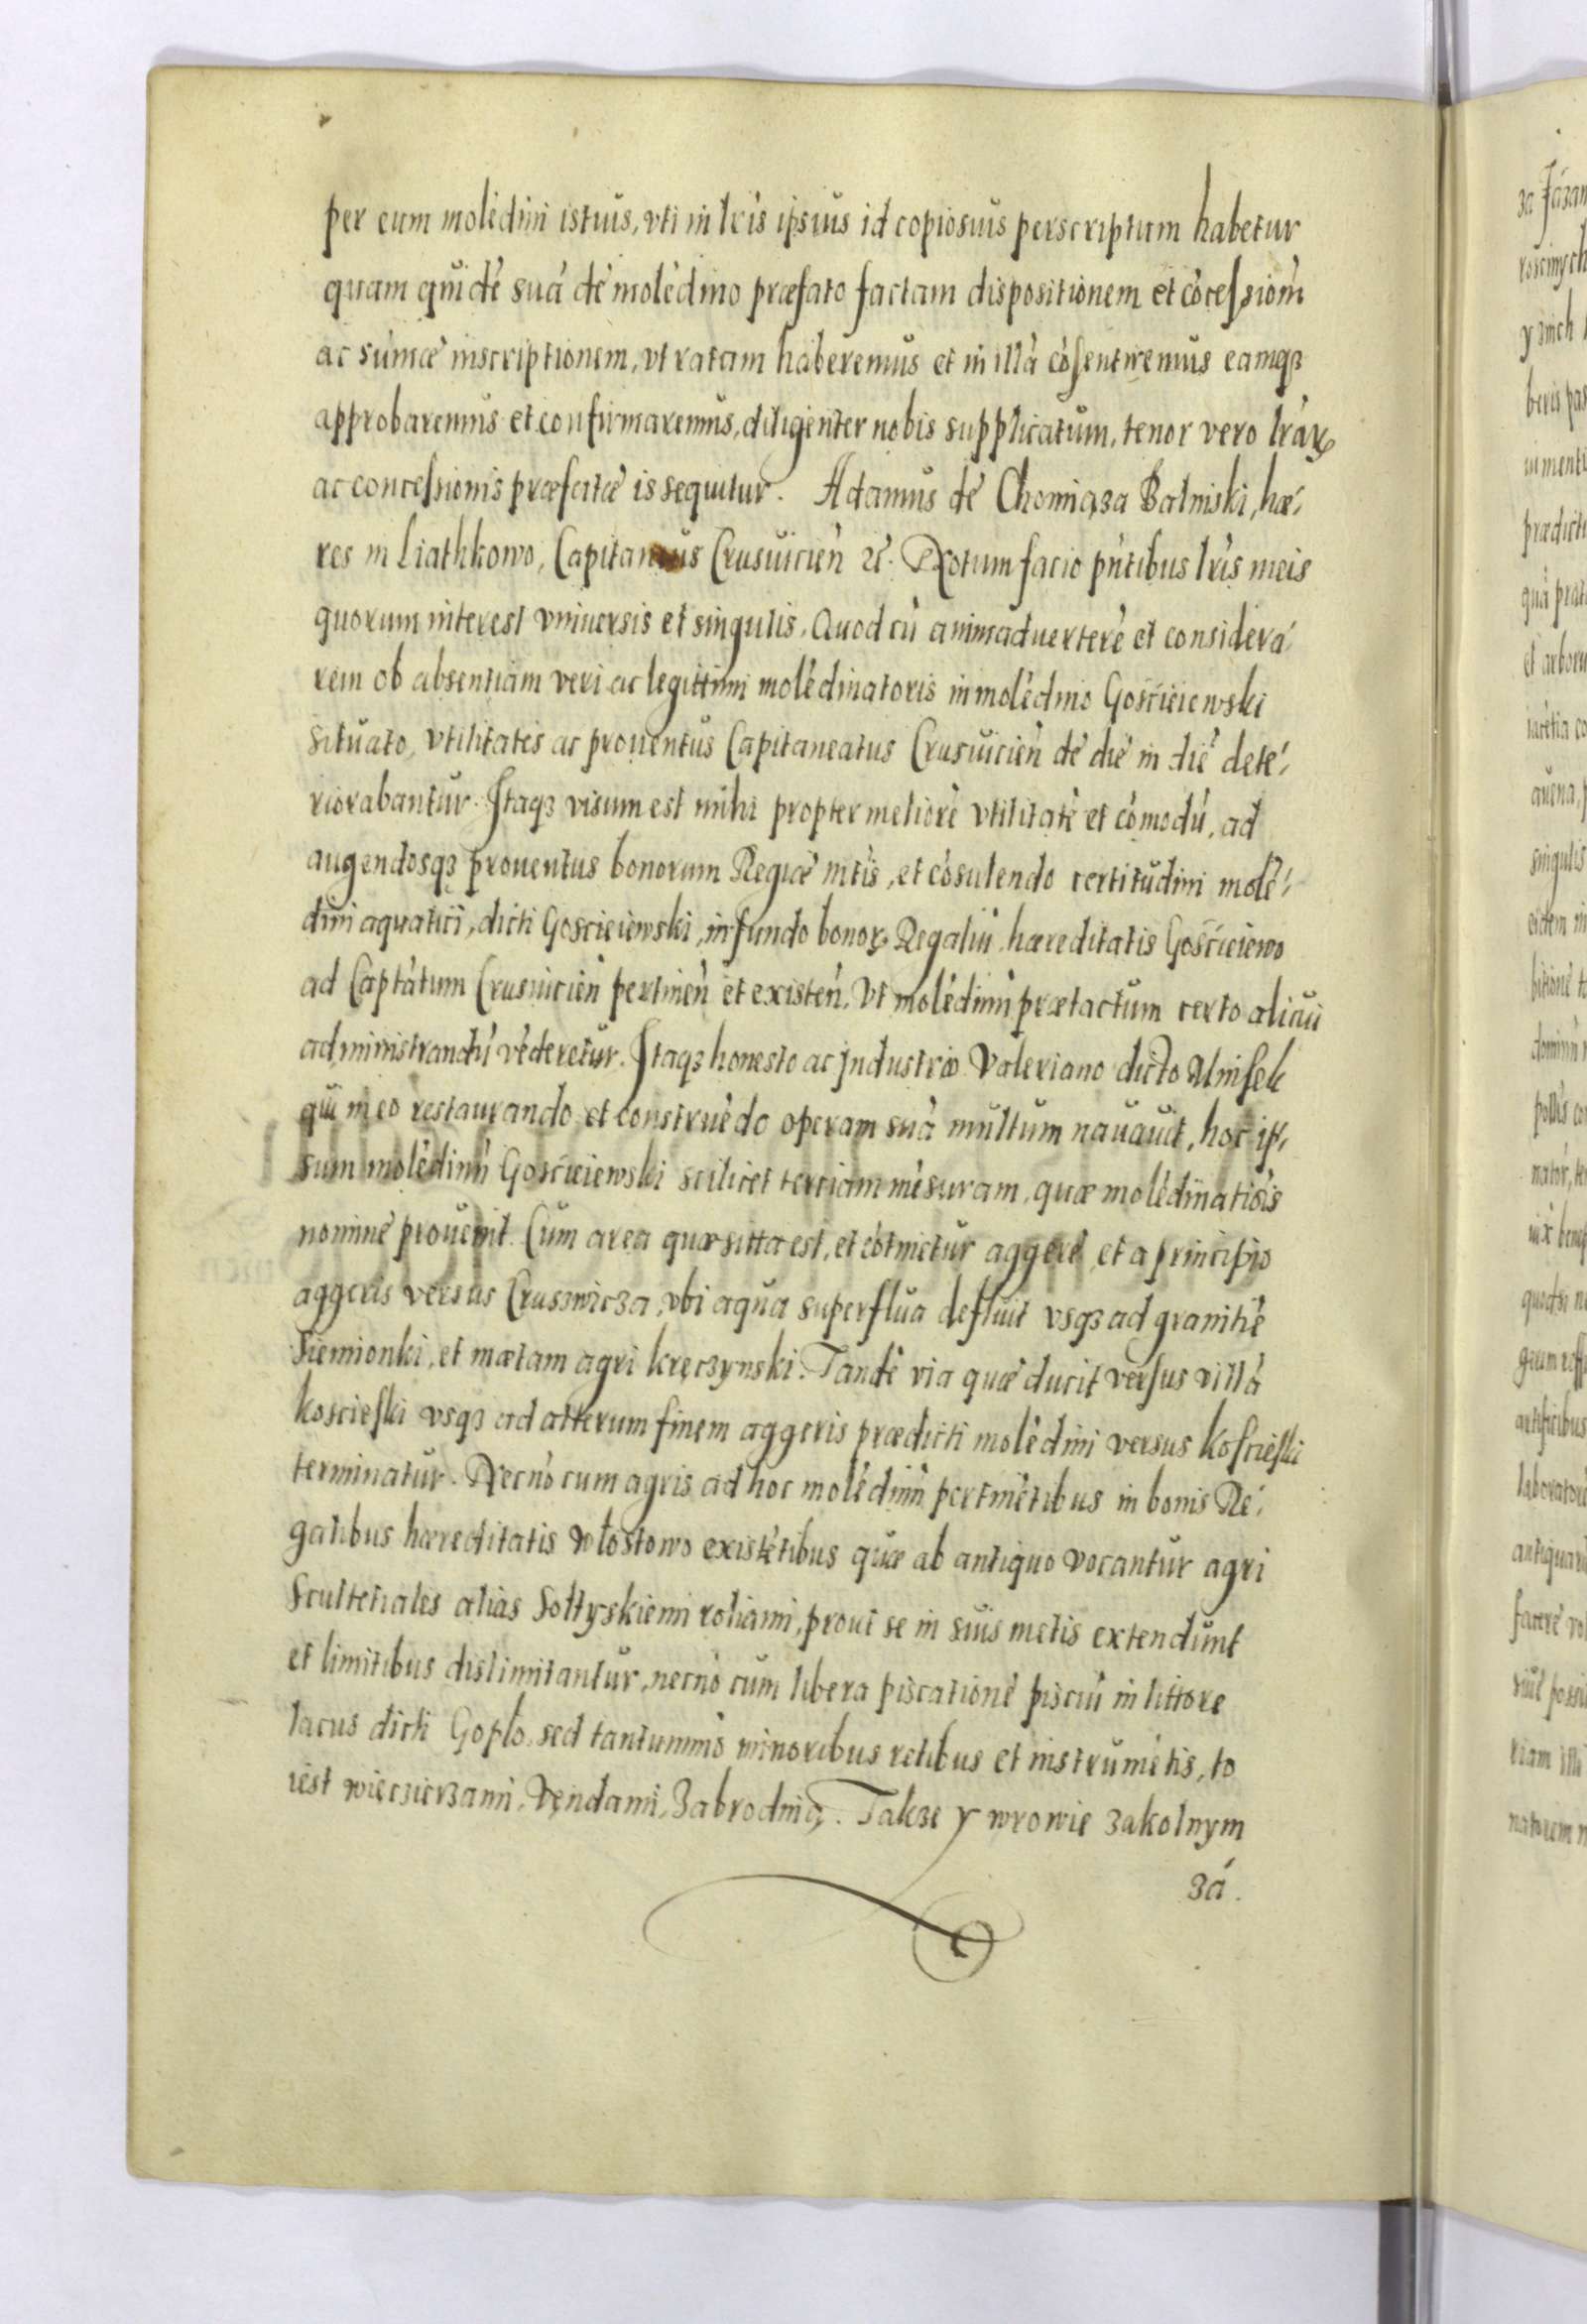 per eum molẽdini istius, vti in lris ipsius id copiosius perscriptum habetur
quam quidẽ suã de molẽdino præfato factam dispositionem et cõcessiom̃
ac sũmæ inscriptionem, vt ratam haberemus et in illã cõsentiremus eamqꝫ
approbaremus et confirmaremus, diligenter nobis supplicatum, tenor vero lraꝝ
ac concessionis præfatæ is sequitur. Adamus de Chomiąza Balinski, hæ-
res in Liathkowo, Capitaneus Crusuicieñ ꝛc. Notum facio pñtibus lris meis
quorum interest vniuersis et singulis. Quod cũ animaduerterẽ et considera-
rem ob absentiam veri ac legittimi molẽdinatoris in molẽdino Gościeiewski
situato, vtilitatis ac prouentus Capitaneatus Crusuicieñ de die in diẽ dete-
riorabantur. Itaqꝫ visum est mihi propter meliorẽ vtilitatẽ et cõmodũ, ad
augendosqꝫ prouentus bonorum Regiæ mtis, et cõsulendo certitudini molẽ-
dini aquatici, dicti Gościeiewski, in fundo bonoꝝ Regaliũ hæreditatis Gościeiewo
ad Captãtum Crusuicieñ pertineñ et existeñ. Vt molẽdinũ prætactum certo alicui
administrandũ vẽderetur. Itaqꝫ honesto ac Industrio Valeriano dicto Unisek
qui in eo restaurando et construẽdo operam suã multum nauauit, hoc ip-
sum molẽdinũ Gościeiewski scilicet terciam mẽsuram, quæ molẽdinatiõis
nomine prouenit. Cum area quæ sitta est, et cõtinetur aggere, et a principio
aggeris versus Cruszwicza, vbi aqua superflua defluit vsqꝫ ad granitiẽ
Siemionki, et mætam agri kręczynski. Tandẽ via quæ ducit versus villã
koscieski vsqꝫ ad alterum finem aggeris prædicti molẽdini versus koscieski
terminatur. Necnõ cum agris ad hoc molẽdinũ pertinẽtibus in bonis Re-
galibus hæreditatis Włostowo existẽtibus quæ ab antiquo vocantur agri
Scultetiales alias Sołtyskiemi roliami, prout se in suis metis extendunt
et limitibus dislimitantur, necnõ cum libera piscatione pisciũ in littore
lacus dicti Goplo, sed tantummõ minoribus retibus et instrumẽtis, to
iest więczierzami, Wędami, Zabrodnią. Takze y wrowie zakolnym
zá.